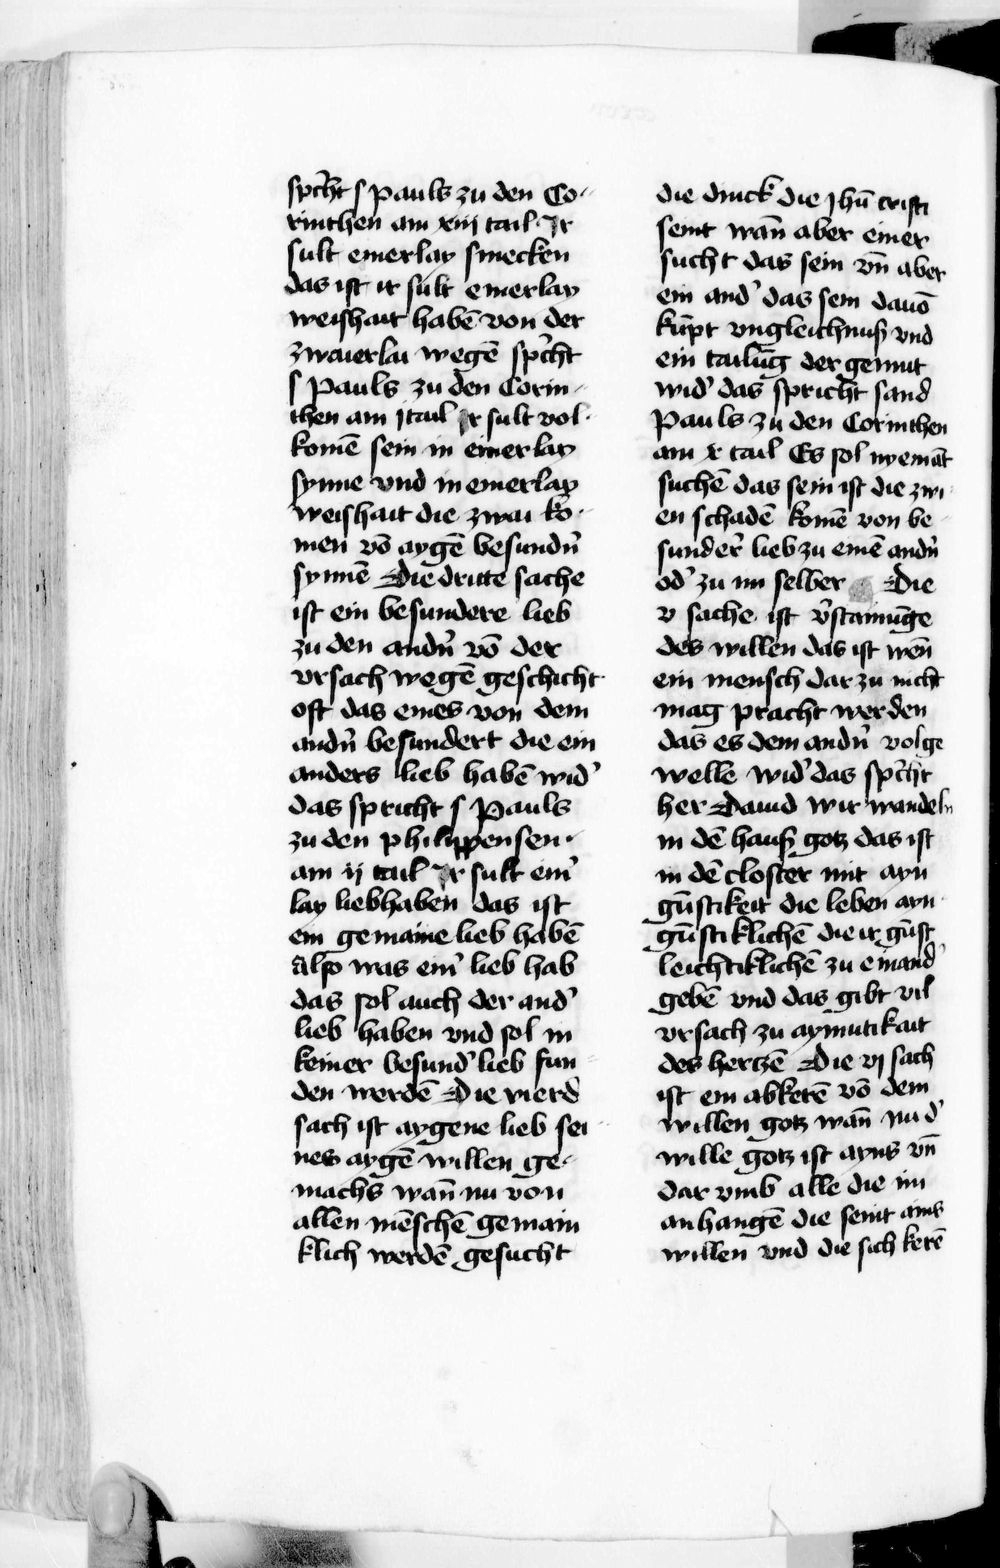 spr̄cht s pauls zu den Co-
rinthen am xiij tail Ir
sult einerlay smecken
das ist ir sult einerlay
weishait habē von der
zwaierlai wegē spr̄cht
s Pauls zu den Corin-
then am j tail Ir sult vol-
komē sein in einerlay
synne vnd in einerlay
weishait die zwai ko-
men vō aygē besundn̄
synnē Die dritte sache
ist ein besundere lieb
zu den andn̄ vō der
vrsach wegē geschicht
oft das eines von dem
andn̄ besundert die ein
anders lieb habē wid'
das spricht s Pauls
zu den philippensen
am ij tail Ir sult ein'
lay liebhaben das ist
ein gemaine lieb habē
also was ein' lieb hab
das sol auch der and'
lieb haben vnd sol in
keiner besund' lieb fun-
den werdē Die vierd
sach ist aygene lieb sei-
nes aygē willen ge-
machs wān nu von
allen mēschē gemain
klich werdē gesucht
die dinck die jhū cristi
seint wān aber einer
sucht das sein vn̄ aber
ein and' das sein dauō
kūpt vngleichnuß vnd
ein tailūg der gemut
wid' das spricht sand
Pauls zu den Corinthen
am x tail Es sol nyemāt
suchē das sein ist die zwi-
en schadē komē von be-
sunder' lieb zu einē andn̄
od' zu im selber Die
v sache ist v'stainūge
des willen das ist wēn
ein mensch dar zu nicht
mag pracht werden
das es dem andn̄ volge
welle wid' das spr̄cht
her Dauid wir wandeln
in dē hauß gotz das ist
in dē closter mit ayn
gūstikeit die leben ayn
gūstiklichē die ir gūst
leichtiklichē zu einand'
gebē vnd das gibt vil
vrsach zu aymutikait
des hertzē Die vj sach
ist ein abkerē vō dem
willen gotz wān nu d'
wille gotz ist ayns vn̄
dar vmb alle die im
anhangē die seint ains
willen vnd die sich kerē